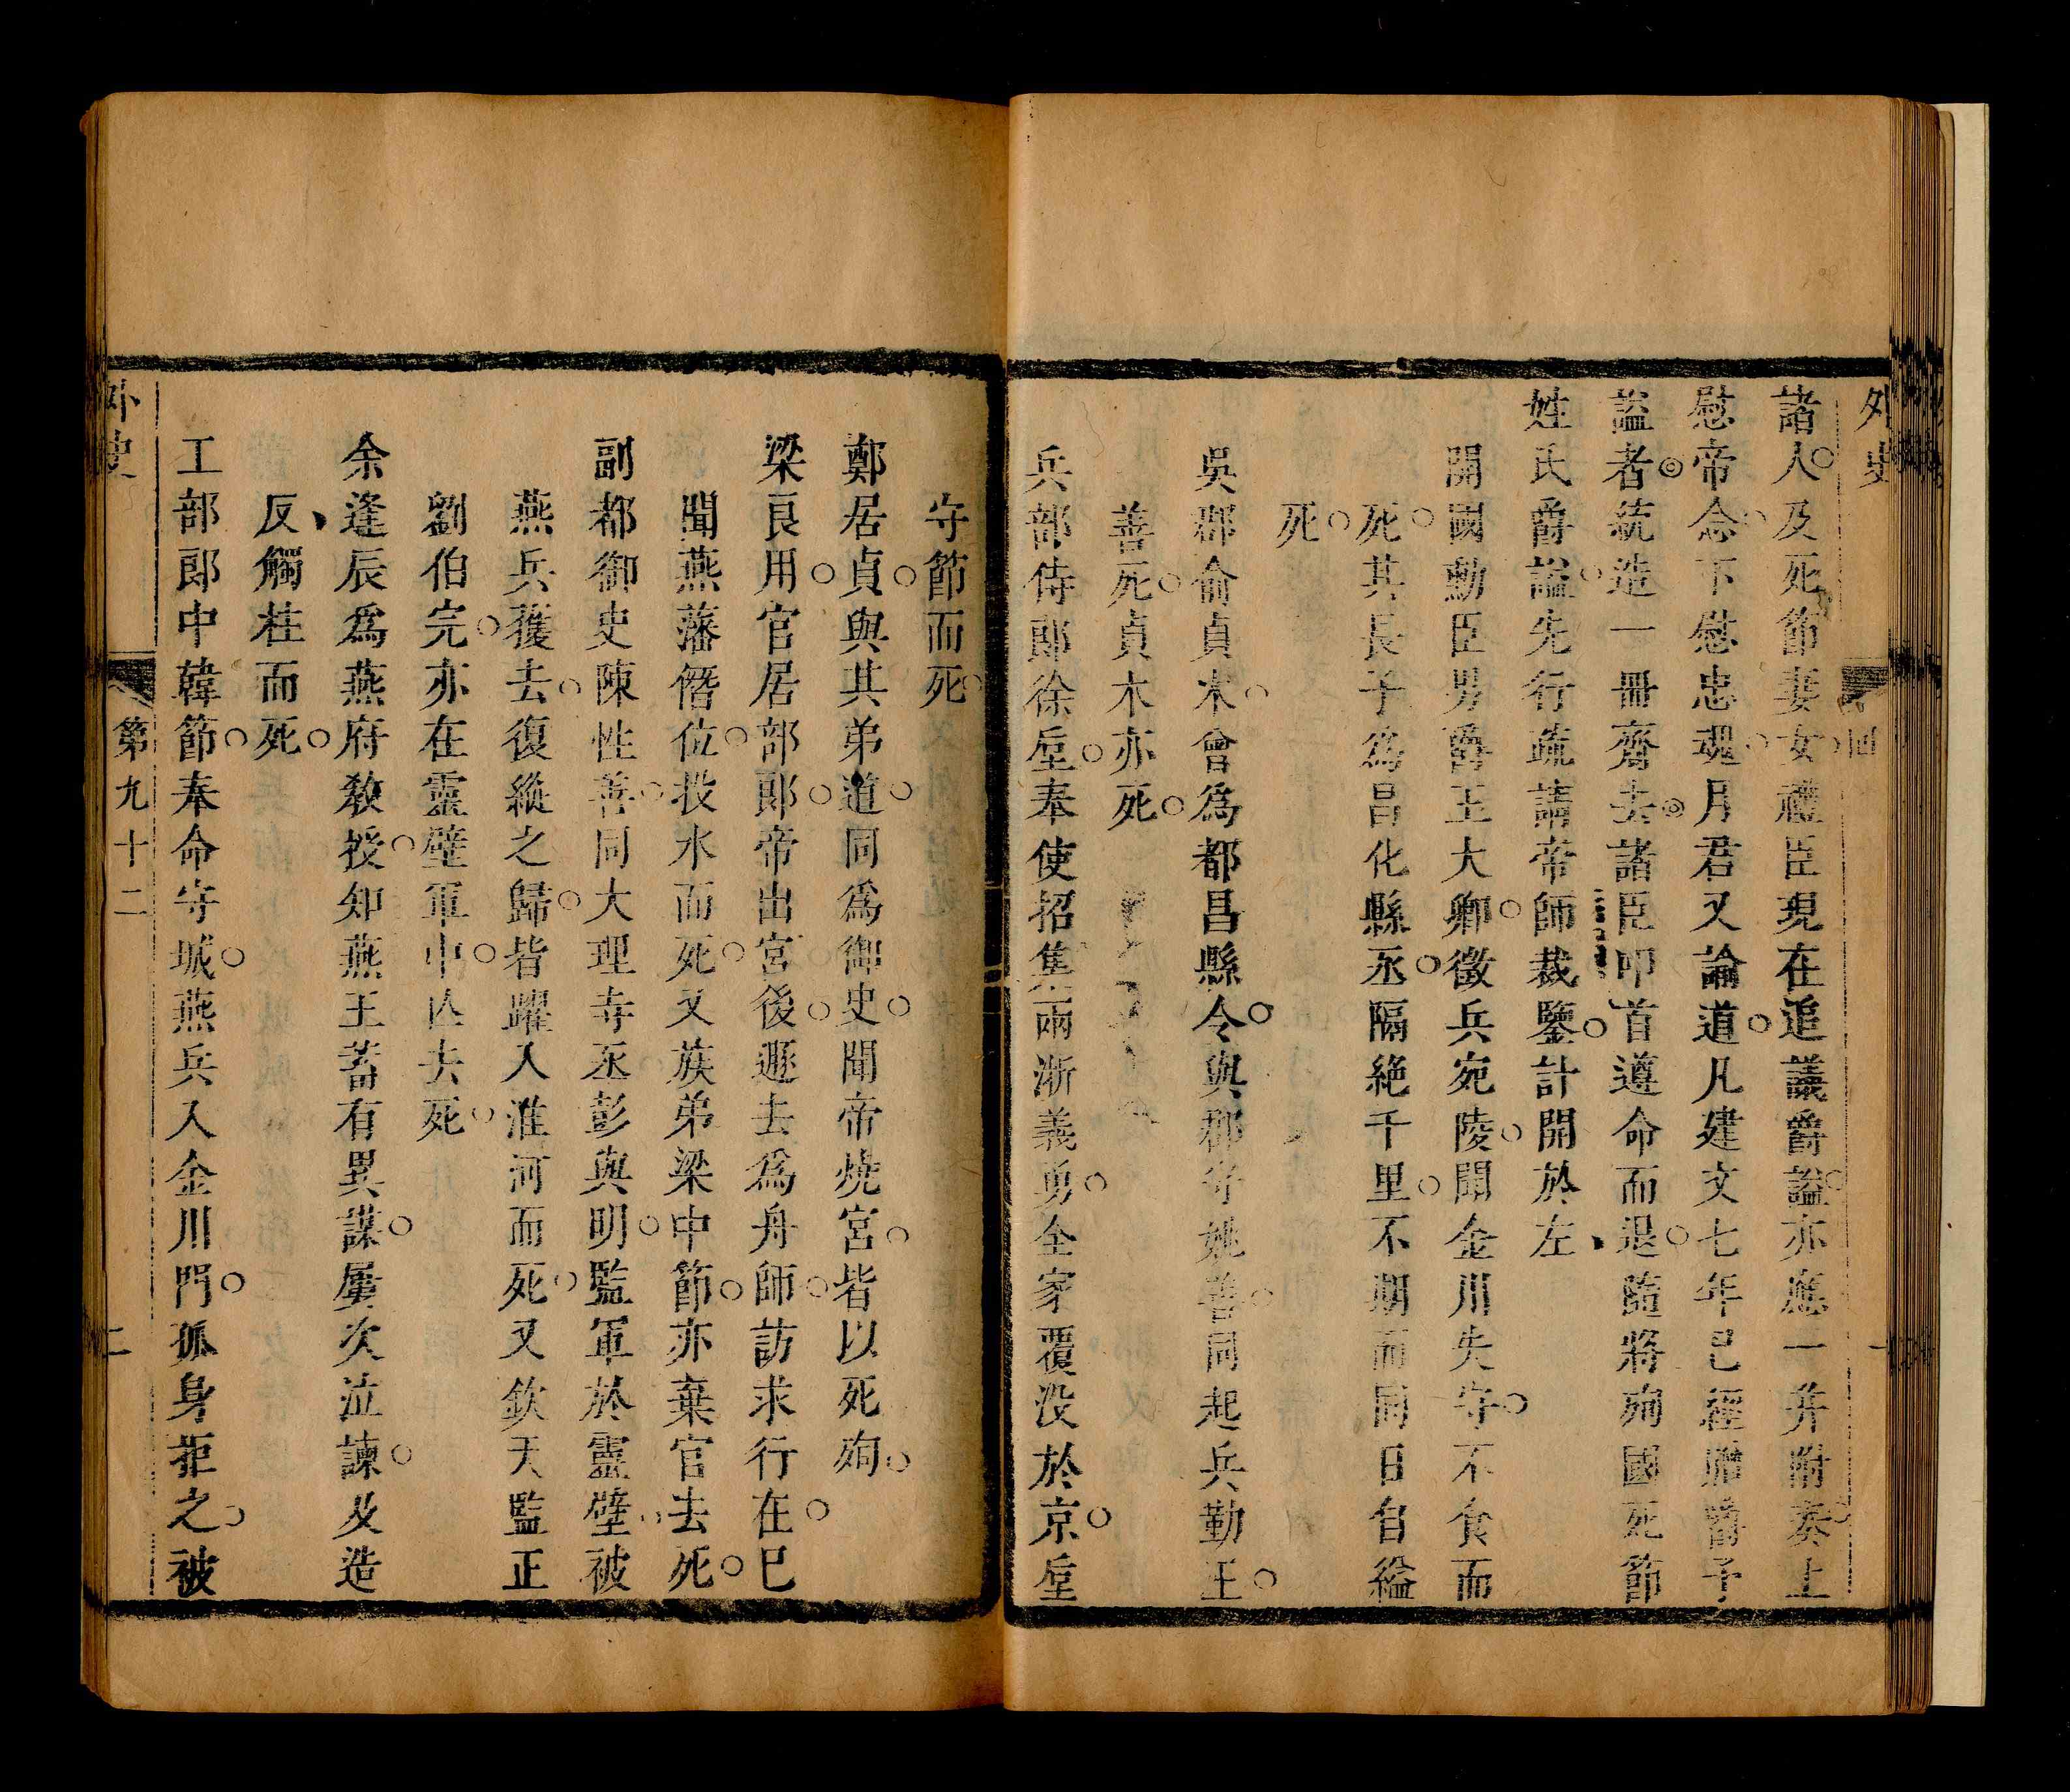 外史
回
一
諸人及死節妻女禮臣現在追議爵諡亦應一并附奏上
慰帝念下慰忠魂月君又論道凡建文七年已經贈爵予
諡者統造一冊齎去諸臣叩首遵命而退隨將殉國死節
姓氏爵諡先行疏請帝師裁鑒計開於左
開國勳臣男爵王大卿徵兵宛陵聞金川失守不食而
死其長子為昌化縣丞隔絕千里不期而同日自縊
死
吳郡俞貞木曾為都昌縣令與郡守姚善同起兵勤王
善死貞木亦死
兵部侍郎徐垕奉使招集兩浙義勇全家覆没於京垕
守節而死
鄭居貞與其弟道同為御史聞帝燒宮皆以死殉
梁良用官居部郎帝出宮後遯去為舟師訪求行在已
聞燕藩僭位投水而死又族弟梁中節亦棄官去死
副都御史陳性善同大理寺丞彭與明監軍於靈壁被
燕兵獲去復縱之歸皆躍入淮河而死又欽天監正
劉伯完亦在靈壁軍中亾去死
余逢辰為燕府教授知燕王蓄有異謀屢次泣諫及造
反觸柱而死
工部郎中韓節奉命守城燕兵入金川門孤身拒之被
外史
第九十二
二